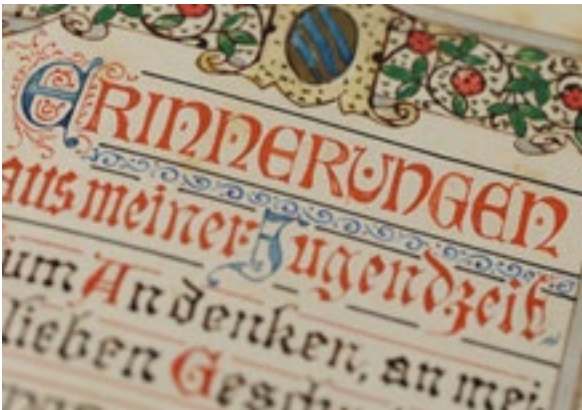 ERINNERUNGEN
aus meiner Jugendzeit
um Andenken, an mei
lieben Gesch